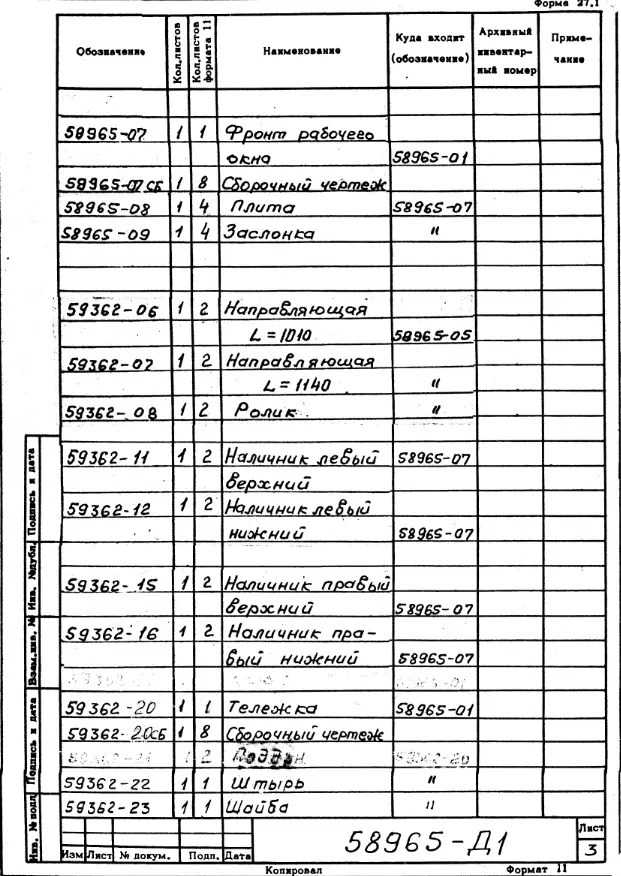 Форма 27.1
Обозначение Кол.листов Кол.листов формата 11 Наименование Куда входит (обозначение) Архивный инвентарный номер Примечание
58965-07 1 1 Фронт рабочего
окна 58965-01
58965-07СБ 1 8 Сборочный чертеж
58965-08 1 4 Плита 58965-07
58965-09 1 4 Заслонка "
59362-06 1 2 Направляющая
L=1010 58965-05
59362-07 1 2 Направляющая
L=1140 "
59362-08 1 2 Ролик "
59362-11 1 2 Наличник левый 58965-07
верхний
59362-12 1 2 Наличник левый
нижний 58965-07
59362-15 1 2 Наличник правый
верхний 58965-07
59362-16 1 2 Наличник пра-
вый нижний 58965-07
59362-20 1 1 Тележка 58965-01
59362-20СБ 1 8 Сборочный чертеж
2 Поддон
59362-22 1 1 Штырь "
59362-23 1 1 Шайба "
Подпись и дата
Инв. № дубл.
Взам.инв. №
Подпись и дата
Инв. № подл
58965-Д1
Лист
3
Изм Лист № докум. Подп. Дата
Копировал Формат 11